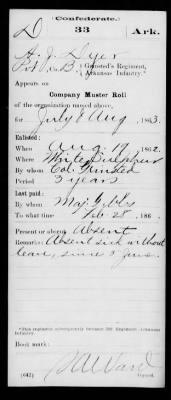 (Confederate.)
D 33 Ark.
H. J. Dyer
Pvt Co. B, Grinsted's Regiment, Arkansas Infantry.*
Appears on
Company Muster Roll
of the organization named above,
for July & Aug, 1863.
Enlisted:
When Aug. 19, 1862.
Where White Sulphur
By whom Col. Grinsted
Period 3 years
Last paid:
By whom Maj. Gibbs
To what time Feb. 28, 186
Present or absent Absent
Remarks: Absent sick without
leave, since 5 June.
*This regiment subsequently became 33d Regiment Arkansas Infantry.
Book mark:
(642) Copyist.